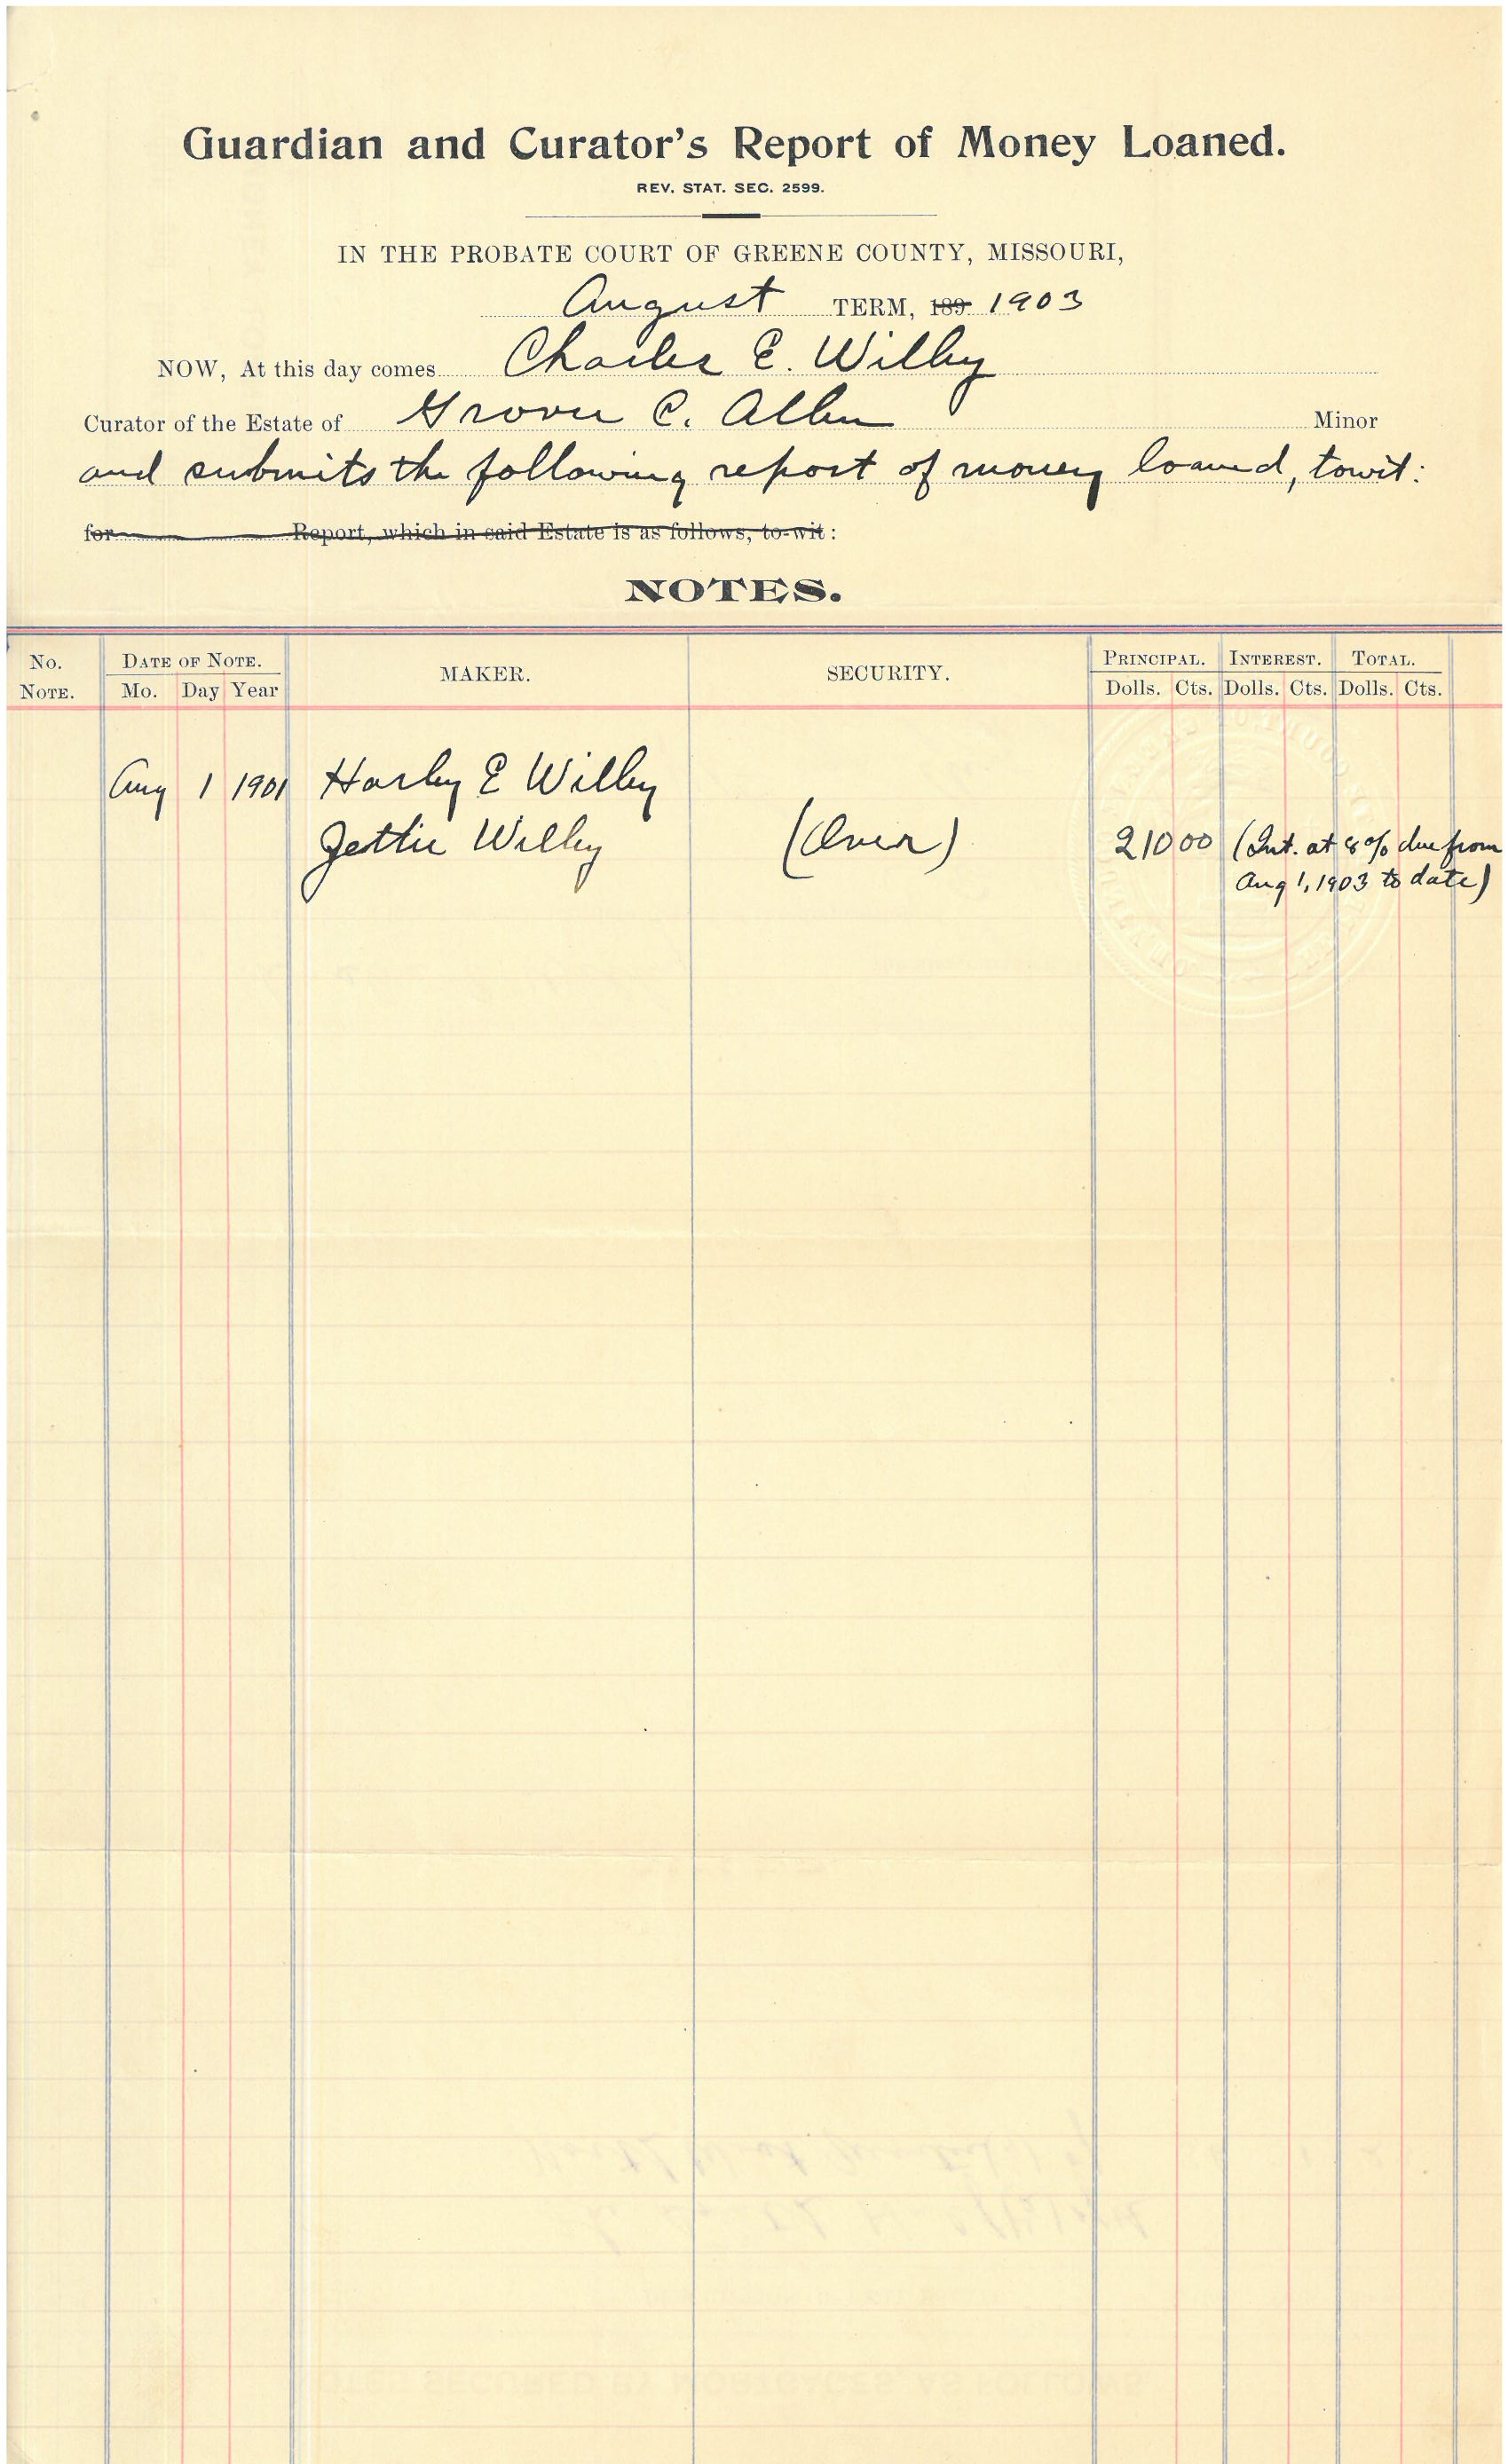 Guardian and Curator's Report of Money Loaned.
REV. STAT. SEC. 2599.
IN THE PROBATE COURT OF GREENE COUNTY, MISSOURI,
August TERM, 189 1903
NOW, At this day comes Charles E. Willey
Curator of the Estate of Grover C. Allen Minor
and submits the following report of money loaned, towit:
for Report, which in said Estate is as follows, to-wit:
NOTES.
No. NOTE. DATE OF NOTE. Mo. Day Year MAKER. SECURITY. PRINCIPAL. Dolls. Cts. INTEREST. Dolls. Cts. TOTAL. Dolls. Cts.
Aug 1 1901 Harley E Willey
Jettie Willey (Over) 210 00 (Int. at 8% due from
Aug 1, 1903 to date)